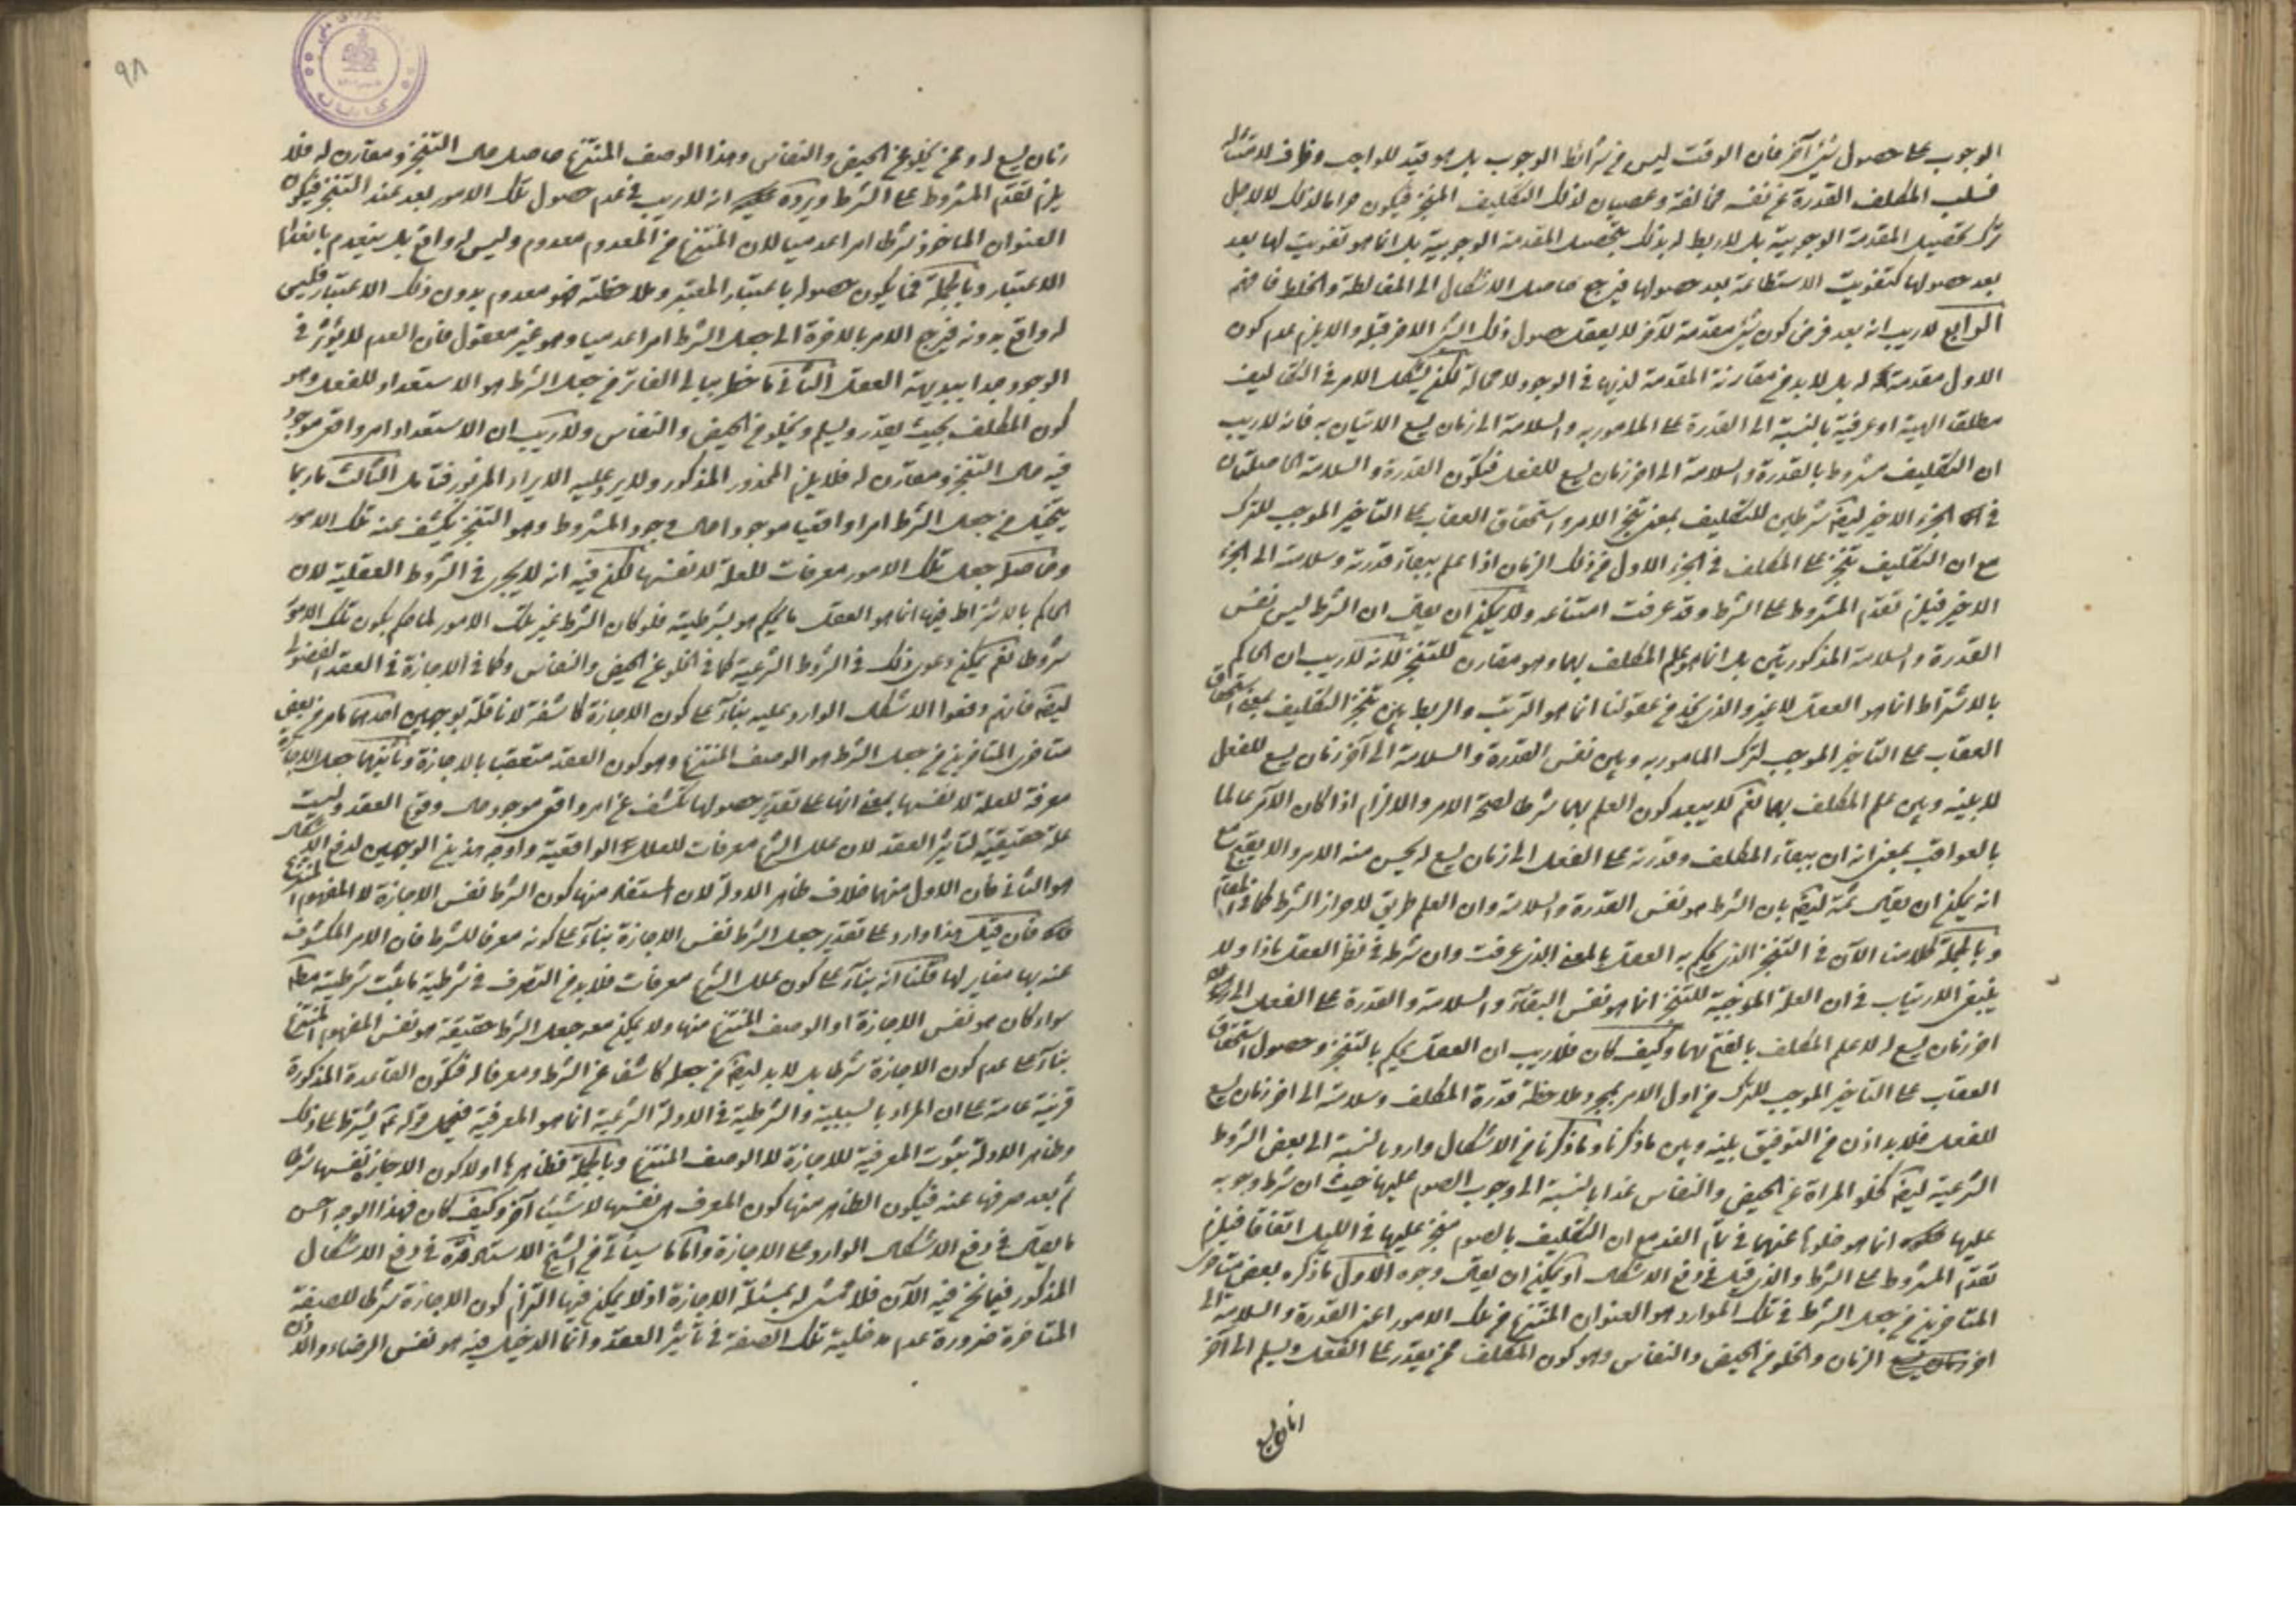 الوجوب على حصول شيء آخر فان الوقت ليس من شرائط الوجوب بل هو قيد للواجب وظرف لامتثاله
فسلب المكلف القدرة عن نفسه مخالفة وعصيان لذلك التكليف المنجز فيكون حراما لذلك لا لاجل
ترك تحصيل المقدمة الوجوبية بل لا ربط له بذلك بتحصيل المقدمة الوجوبية بل انما هو تفويت لها بعد
بعد حصولها كتفويت الاستطاعة بعد حصولها فيرجع حاصل الاشكال الى المغالطة والخلط فافهم
الرابع لا ريب انه بعد فرض كون شيء مقدمة لآخر لا يعقل حصول ذلك الشيء الاخر قبله والا يلزم عدم كون
الاول مقدمة له بل لا بد من مقارنة المقدمة لذيها في الوجود لا محالة لكن يشكل الامر في التكاليف
مطلقا الهية او عرفية بالنسبة الى القدرة على المامور به والسلامة الى زمان يسع الاتيان به فانه لا ريب
ان التكليف مشروط بالقدرة والسلامة الى اخر زمان يسع للفعل فتكون القدرة والسلامة الحاصلتان
في الجزء الاخير ايضا شرطين للتكليف بمعنى تنجز الامر واستحقاق العقاب على التاخير الموجب للترك
مع ان التكليف يتنجز على المكلف في الجزء الاول من ذلك الزمان اذا علم ببقاء قدرته وسلامته الى الجزء
الاخير فيلزم تقدم المشروط على الشرط وقد عرفت امتناعه ولا يمكن ان يقال ان الشرط ليس نفس
القدرة والسلامة المذكورتين بل انما هو علم المكلف بهما وهو مقارن للتنجز لانه لا ريب ان الحاكم
بالاشتراط انما هو العقل لا غير والذي نجد من عقولنا انما هو الترتب والربط بين تنجز التكليف بمعنى استحقاق
العقاب على التاخير الموجب لترك المامور به وبين نفس القدرة والسلامة الى آخر زمان يسع للفعل
لا بينه وبين علم المكلف بهما نعم لا يبعد كون العلم بهما شرطا لصحة الامر والالزام اذا كان الآمر عالما
بالعواقب بمعنى انه ان ببقاء المكلف وقدرته على الفعل الى زمان يسع له يحسن منه الامر والا يقبح مع
انه يمكن ان يقال ثمة ايضا بان الشرط هو نفس القدرة والسلامة وان العلم طريق لاحراز الشرط كما في المقام
وبالجملة كلامنا الآن في التنجز الذي يحكم به العقل بالمعنى الذي عرفت وان شرطه في نظر العقل ماذا ولا
ينبغي الارتياب في ان العلة الموجبة للتنجز انما هو نفس البقاء والسلامة والقدرة على الفعل الى
اخر زمان يسع له لا علم المكلف بالفتح بهما وكيف كان فلا ريب ان العقل يحكم بالتنجز وحصول استحقاق
العقاب على التاخير الموجب للترك من اول الامر بمجرد ملاحظة قدرة المكلف وسلامته الى اخر زمان يسع
للفعل فلا بد اذن من التوفيق بينه وبين ما ذكرنا وما ذكرنا من الاشكال وارد بالنسبة الى بعض الشروط
الشرعية ايضا كخلو المراة عن الحيض والنفاس غدا بالنسبة الى وجوب الصوم عليها حيث ان شرط وجوبه
عليها انما هو خلوها عنهما في تمام الغد مع ان التكليف بالصوم منجز عليها في الليل اتفاقا فيلزم
تقدم المشروط على الشرط والذي قيل في دفع الاشكال او يمكن ان يقال وجوه الاول ما ذكره بعض متاخري
المتاخرين من جعل الشرط في تلك الموارد هو العنوان المنتزع من تلك الامور اعني القدرة والسلامة الى
اخر الزمان والخلو من الحيض والنفاس وهو كون المكلف ممن يقدر على الفعل ويسلم الى آخر
زمان يسع له وممن يخلو عن الحيض والنفاس وهذا الوصف المنتزع حاصل حال التنجز ومقارن له فلا
يلزم تقدم المشروط على الشرط ويرده انه لا ريب في عدم حصول تلك الامور بعد عند التنجز فيكون
العنوان الماخوذ شرطا امرا عدميا لان المنتزع من المعدوم معدوم وليس له واقع بل ينعدم بانعدام
الاعتبار وبالجملة فما يكون حصوله باعتبار المعتبر وملاحظته فهو معدوم بدون ذلك الاعتبار فليس
له واقع بدونه فيرجع الامر بالاخرة الى جعل الشرط امرا عدميا وهو غير معقول فان العدم لا يؤثر في
الوجود جدا ببديهة العقل الثاني ما خطر ببالي الفاتر من جعل الشرط هو الاستعداد للفعل وهو
كون المكلف بحيث يقدر ويسلم ويخلو من الحيض والنفاس ولا ريب ان الاستعداد امر واقعي موجود
فيه حال التنجز ومقارن له فلا يلزم المحذور المذكور ولا يرد عليه الايراد المزبور فتامل الثالث ما ربما
يتخيل من جعل الشرط امرا واقعيا موجودا حال وجود المشروط وهو التنجز يكشف عنه تلك الامور
وحاصله جعل تلك الامور معرفات للعلة لا نفسها لكن فيه انه لا يجري في الشروط العقلية لان
الحاكم بالاشتراط فيها انما هو العقل ما يحكم هو بشرطيته فلو كان الشرط غير تلك الامور لما حكم بكون تلك الامور
شروطا نعم يمكن دعوى ذلك في الشروط الشرعية كما في الخلو عن الحيض والنفاس وكما في الاجازة في العقد الفضولي
ايضا فانهم دفعوا الاشكال الوارد عليه بناء على كون الاجازة كاشفة لا ناقلة بوجهين احدهما ما مر من بعض
متاخري المتاخرين من جعل الشرط هو الوصف المنتزع وهو كون العقد متعقبا بالاجازة وثانيهما جعل الاجازة
معرفة للعلة لا نفسها بمعنى انها على تقدير حصولها تكشف عن امر واقعي موجود حال وقوع العقد وليست
علة حقيقية لتاثير العقد لان علل الشرع معرفات للعلل الواقعية واوجه هذين الوجهين لدفع الاشكال
هو الثاني فان الاول منهما خلاف ظاهر الادلة لان المستفاد منها كون الشرط نفس الاجازة لا المفهوم المنتزع
فان قيل هذا وارد على تقدير جعل الشرط نفس الاجازة بناء على كونه معرفا للشرط فان الامر المكشوف
عنه بها مغاير لها قلنا انه بناء على كون علل الشرع معرفات فلا بد من التصرف في شرطية ما ثبت شرطيته مطلقا
سواء كان هو نفس الاجازة او الوصف المنتزع منها ولا يمكن معه جعل الشرط حقيقة هو نفس المفهوم المنتزع
بناء على عدم كون الاجازة شرطا بل لا بد ايضا من جعله كاشفا عن الشرط ومعرفا له فتكون القاعدة المذكورة
قرينة عامة على ان المراد بالسببية والشرطية في الادلة الشرعية انما هو المعرفية فيحمل قوله يشترط على ذلك
وظاهر الادلة ثبوت المعرفية للاجازة لا الوصف المنتزع وبالجملة فظاهرها اولا كون الاجازة نفسها شرطا
ثم بعد صرفها عنه فيكون الظاهر منها كون المعرف هي نفسها لا شيئا آخر وكيف كان فهذا الوجه احسن
ما يقال في دفع الاشكال الوارد على الاجازة واما ما سياتي من الشيخ الاستاد في دفع الاشكال
المذكور فيما نحن فيه الآن فلا تمشي له بمسئلة الاجازة اذ لا يمكن فيها التزام كون الاجازة شرطا للصفة
المتاخرة ضرورة عدم مدخلية تلك الصفة في تاثير العقد وانما الدخيل فيه هو نفس الرضاء والاذن